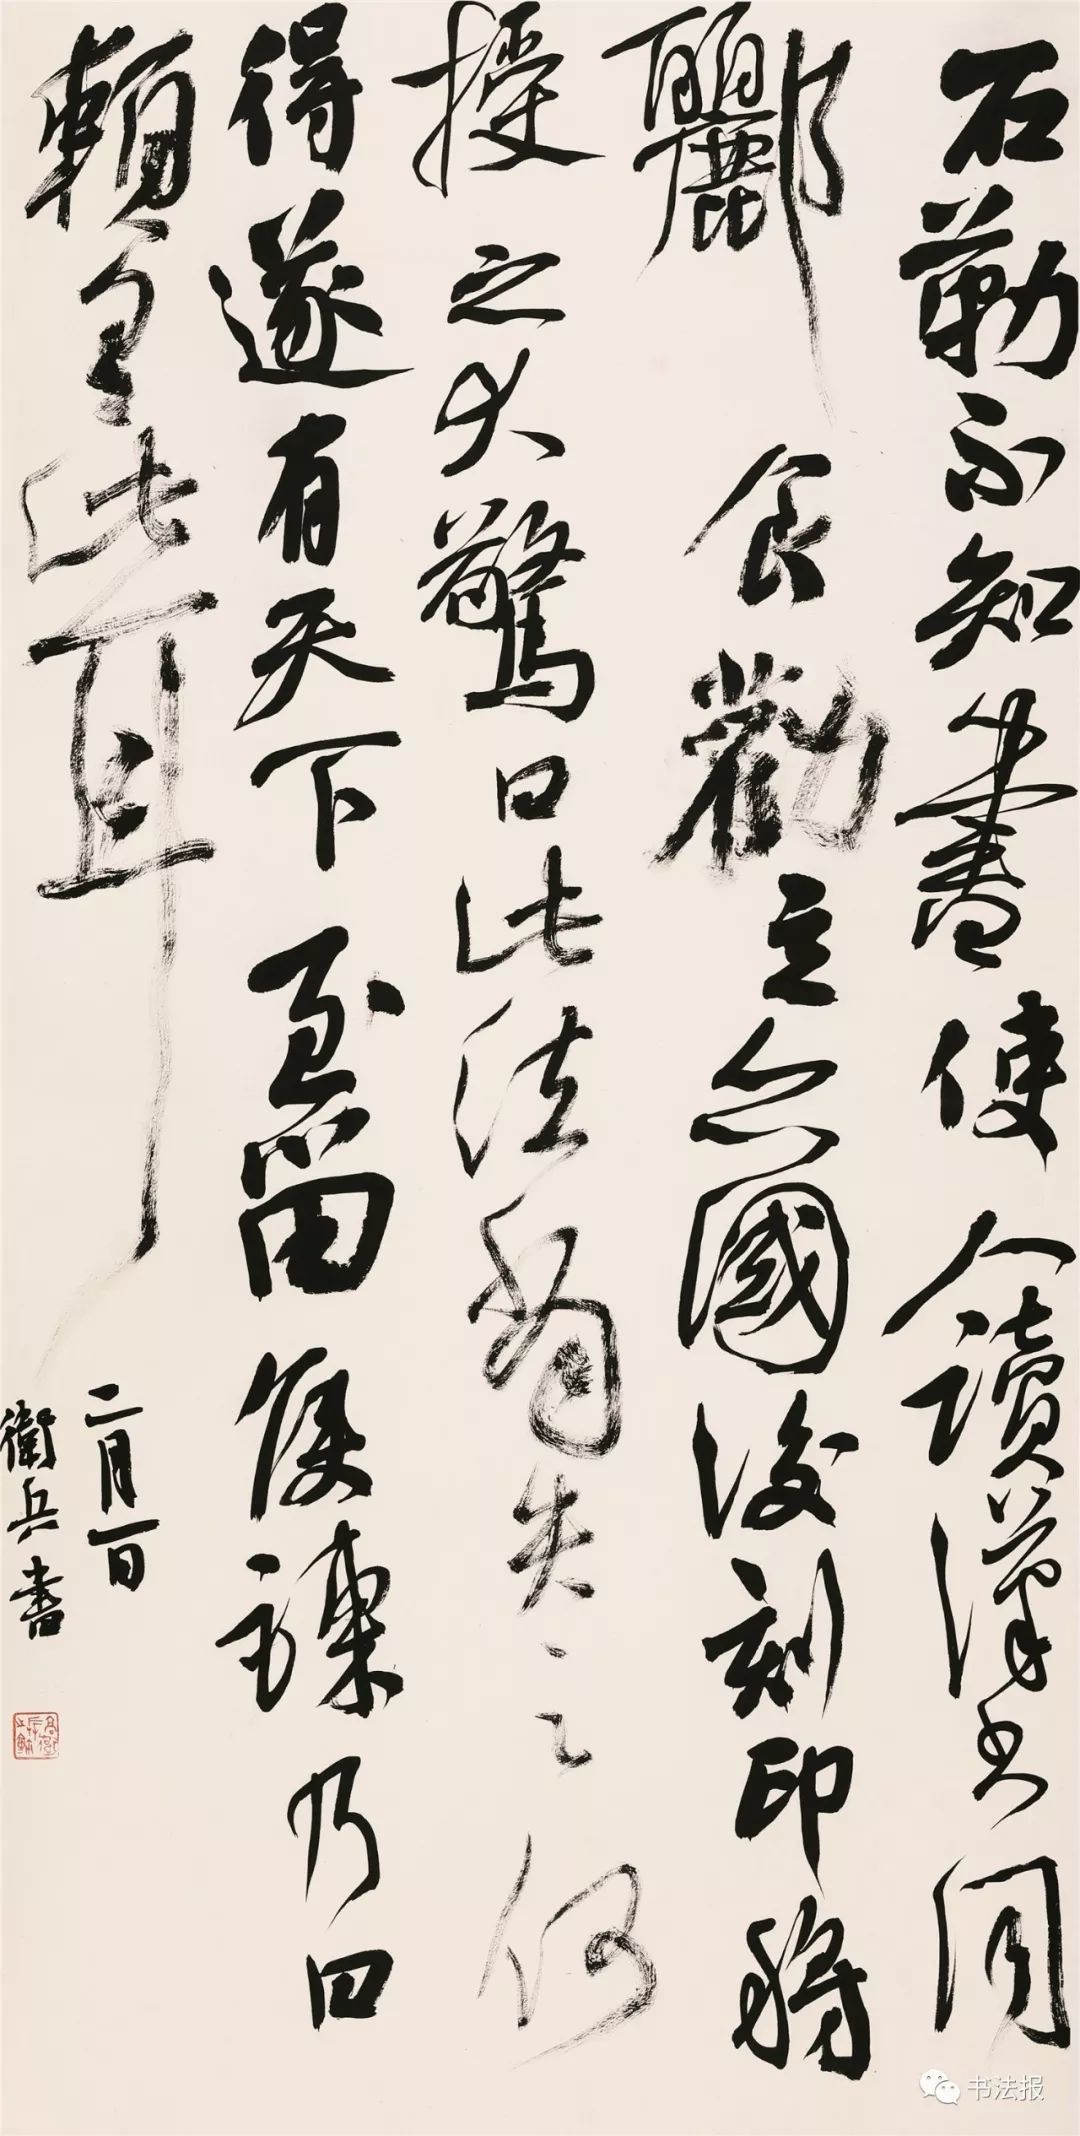 石勒不知書使人讀漢書聞
酈食勸立六國後刻印將
授之大驚曰此法當失云何
得遂有天下至留侯諫乃曰
賴有此耳
二月一日
衛兵書
书法报